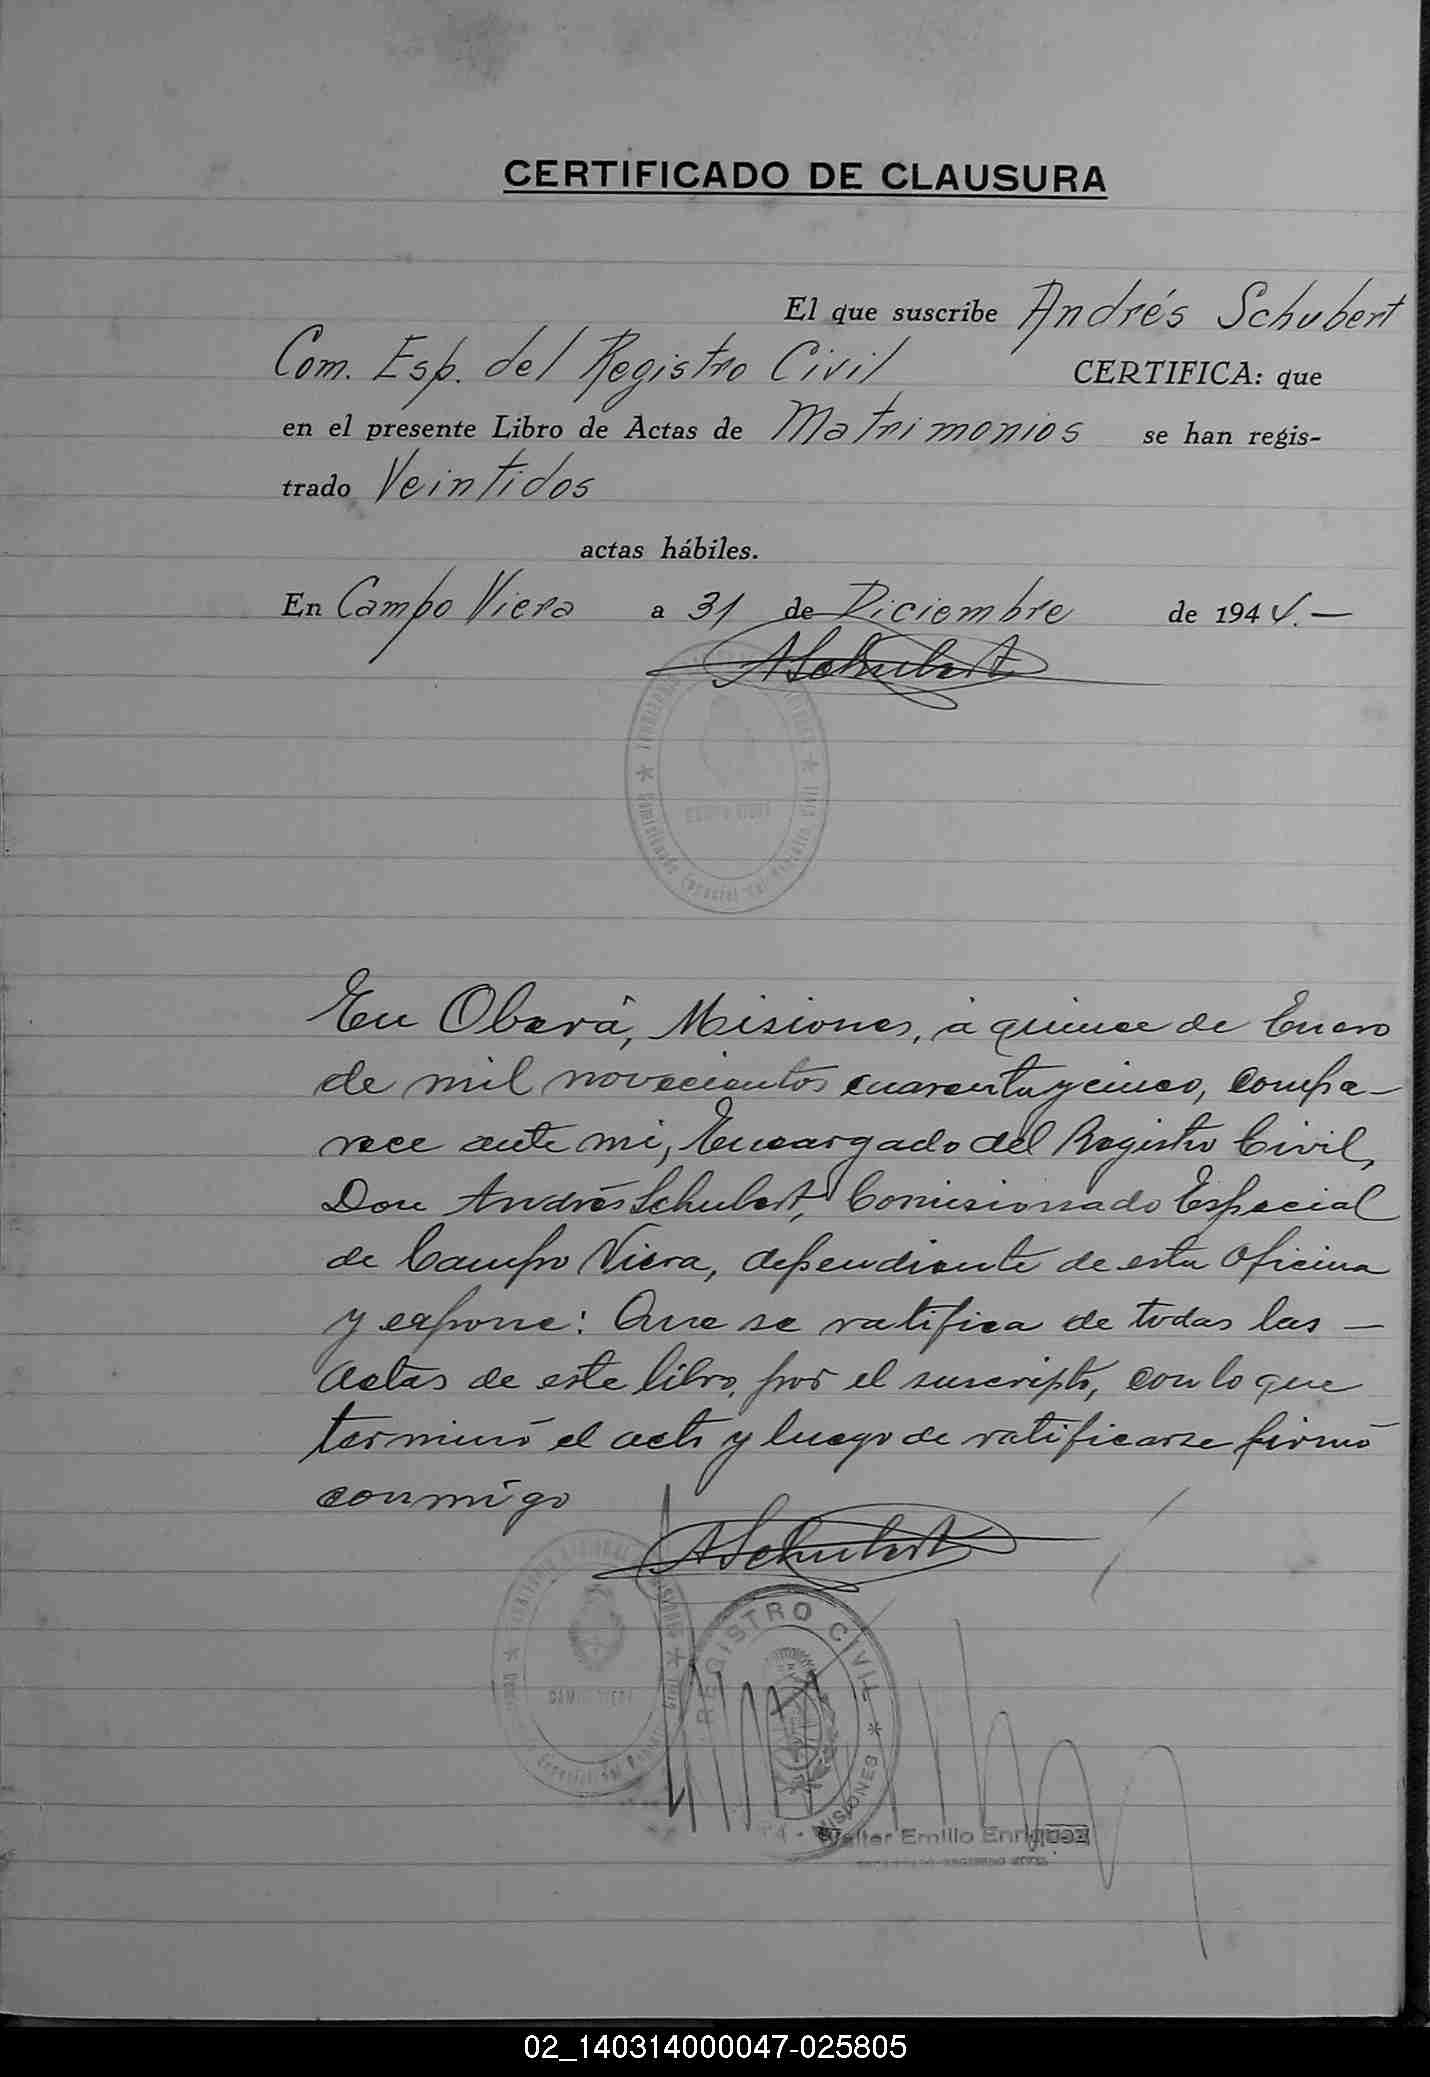 CERTIFICADO DE CLAUSURA
El que suscribe Andrés Schubert
Com. Esp. del Registro Civil CERTIFICA: que
en el presente Libro de Actas de Matrimonios se han regis-
trado Veintidos
actas hábiles.
En Campo Viera a 31 de Diciembre de 1944.—
ASchubert
CAMPO VIERA
Comisionado Especial del Registro Civil
En Oberá, Misiones, á quince de Enero
de mil novecientos cuarenta y cinco, compa-
rece ante mi, Encargado del Registro Civil,
Don Andrés Schubert, Comisionado Especial
de Campo Viera, dependiente de esta Oficina
y expone: Que se ratifica de todas las —
actas de este libro, por el suscripto, con lo que
terminó el acto y luego de ratificarse firmó
conmigo
ASchubert
TERRITORIO NACIONAL MISIONES
CAMPO VIERA
REGISTRO CIVIL
MISIONES
Walter Emilio Enriquez
02_140314000047-025805